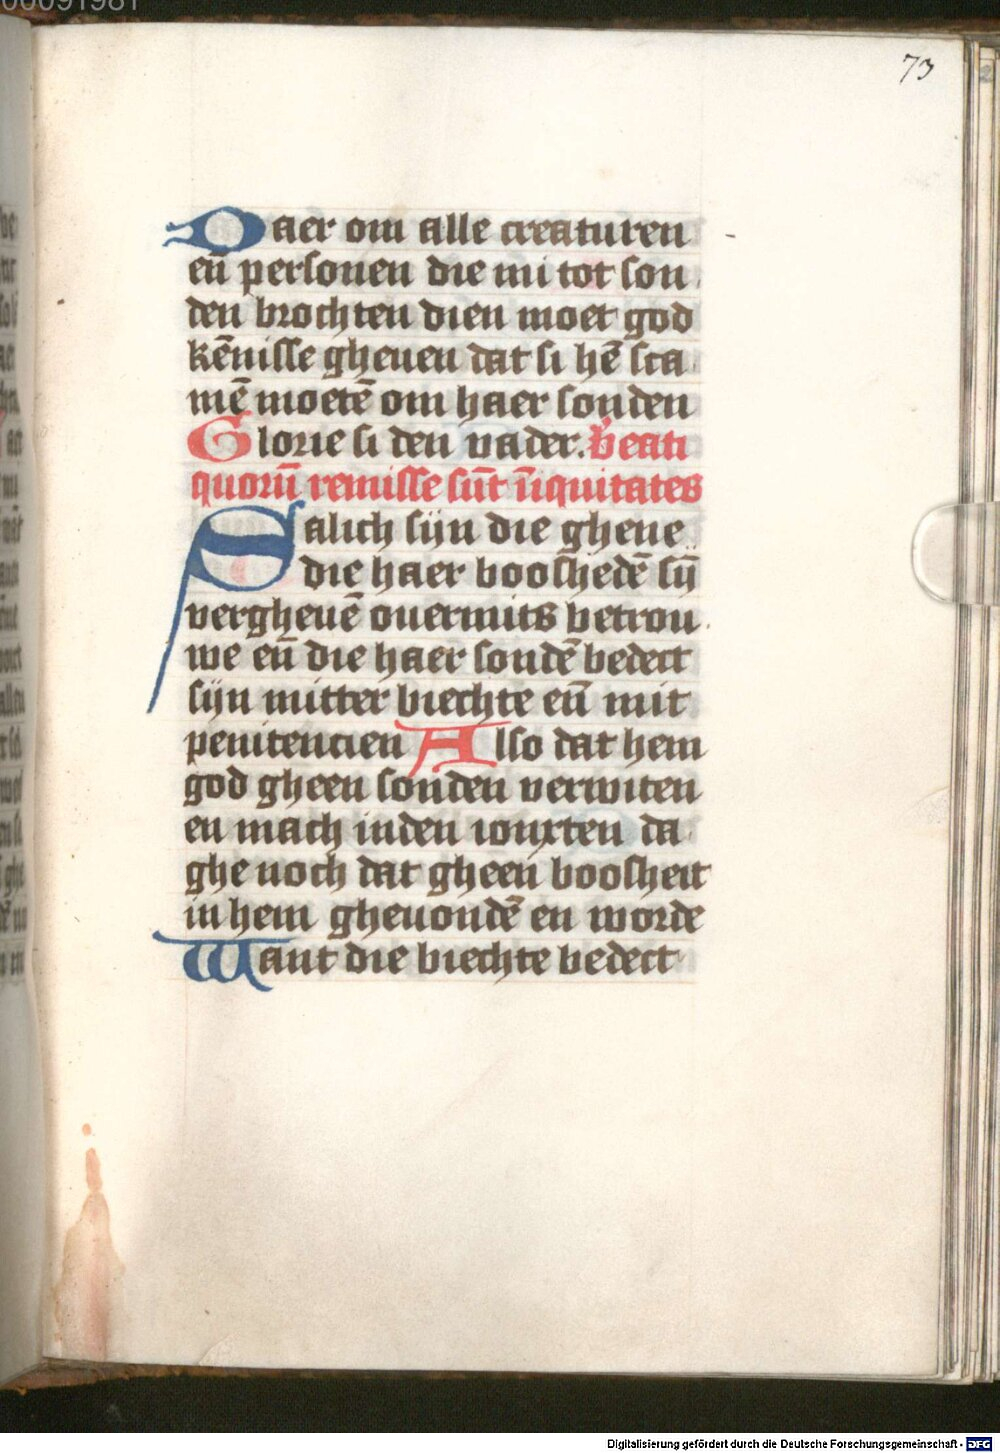 73
Daer om alle creaturen
eñ personen die mi tot son
den brochten dien moet god
kēnisse gheuen dat si hē sca
mē moetē om haer sonden
Glorie si den vader. Beati
quorū remisse sūt īiquitates
Salich sijn die ghene
die haer booshedē sij̄
vergheuē ouermits betrou
we eñ die haer sondē bedect
sijn mitter biechte eñ mit
penitencien Also dat hem
god gheen sonden verwiten
en mach inden ionxten da
ghe noch dat gheen boosheit
in hem gheuondē en worde
Want die biechte bedect
Digitalisierung gefördert durch die Deutsche Forschungsgemeinschaft - DFG